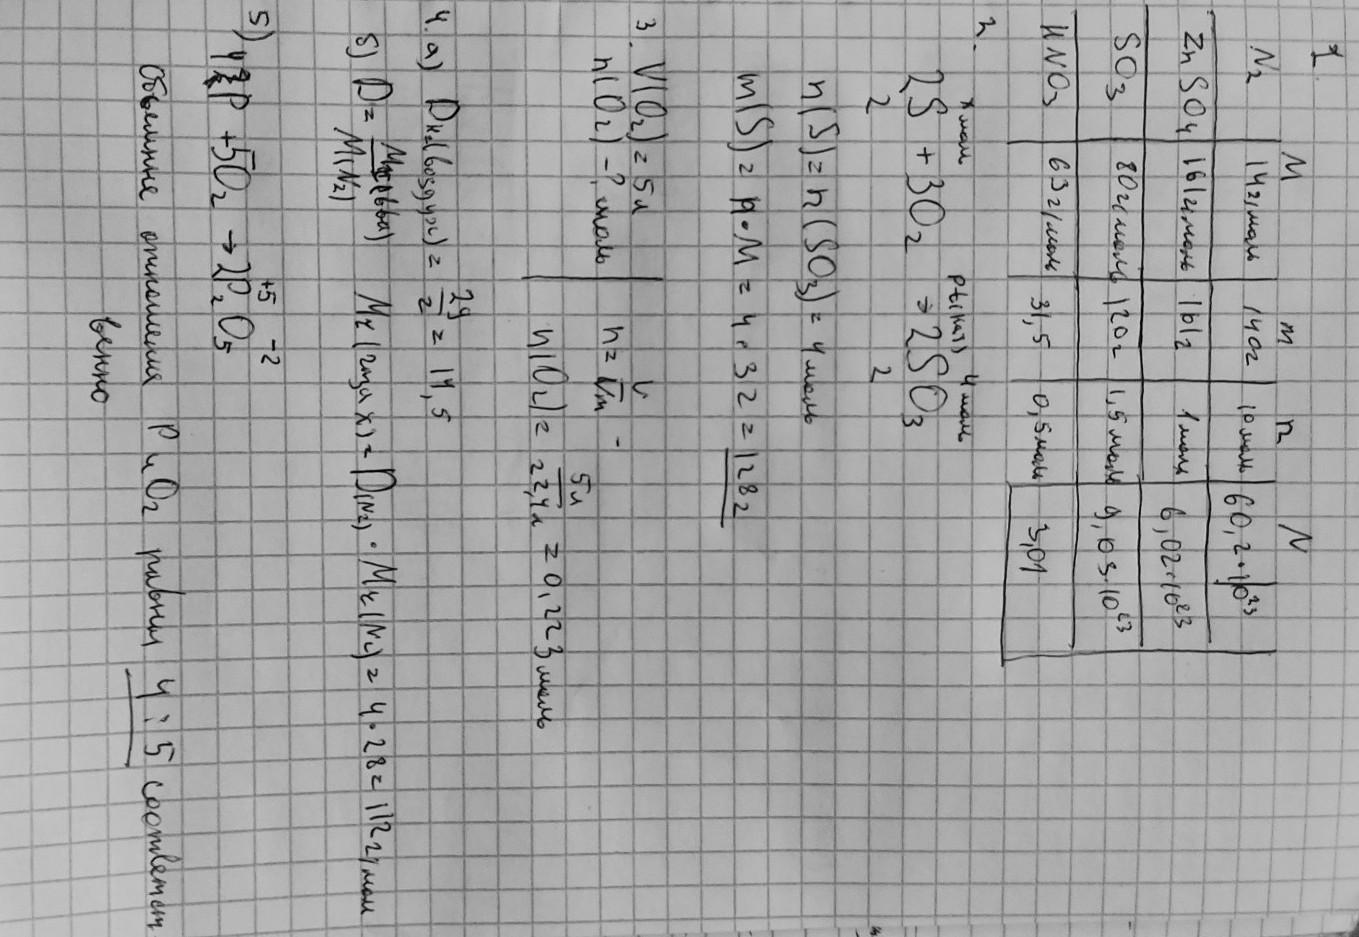 1
M m n N
N₂ 14 г/моль 140г 10 моль 60,2·10²³
ZnSO₄ 161г/моль 161г 1 моль 6,02·10²³
SO₃ 80г/моль 120г 1,5 моль 9,03·10²³
HNO₃ 63г/моль 31,5 0,5моль 3,01
2.
x моль 4 моль
2S + 3O₂ → 2SO₃
2 2
n(S) = n(SO₃) = 4 моль
m(S) = n·M = 4·32 = 128г
3. V(O₂) = 5л
n(O₂) - ?, моль
n = V/Vm
n(O₂) = 5л/22,4л = 0,223 моль
4. а) D H₂(воздух) = 29/2 = 14,5
б) D = /M(N₂) Mr(газа x) = D(N₂)·Mr(N₂) = 4·28 = 112г/моль
5) 4P + 5O₂ → 2P₂⁺⁵O₅⁻²
Объемные отношения P и O₂ равны 4:5 соответст
венно